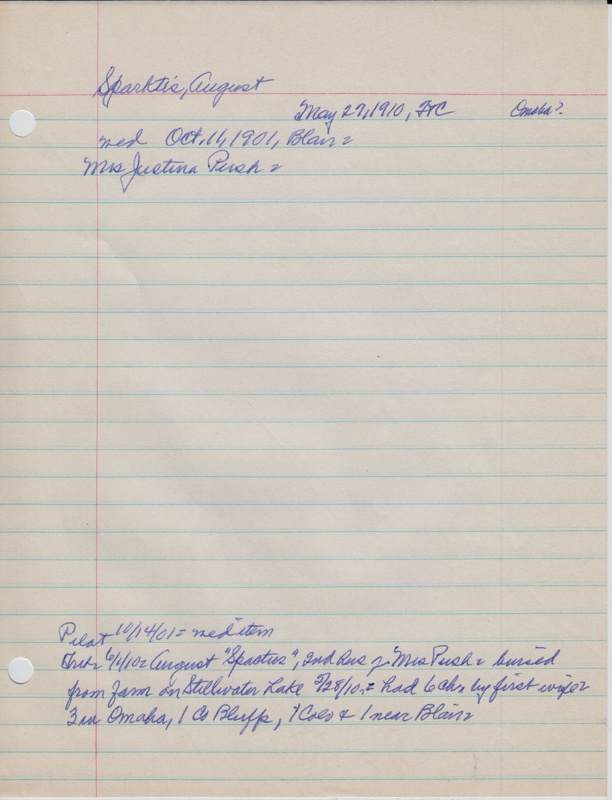 Sparktis, August
May 27, 1910, FTC Omaha?
wed Oct. 11, 1901, Blair =
Mrs Justina Push =
Pilot 10/14/01 = wed item
Trib = 6/1/10 = August "Spactus", 2nd hus of Mrs Push = buried
from farm on Stillwater Lake 5/28/10 = had 6 ch. by first wife =
3 in Omaha, 1 Co Bluffs, 1 Colo & 1 near Blair =